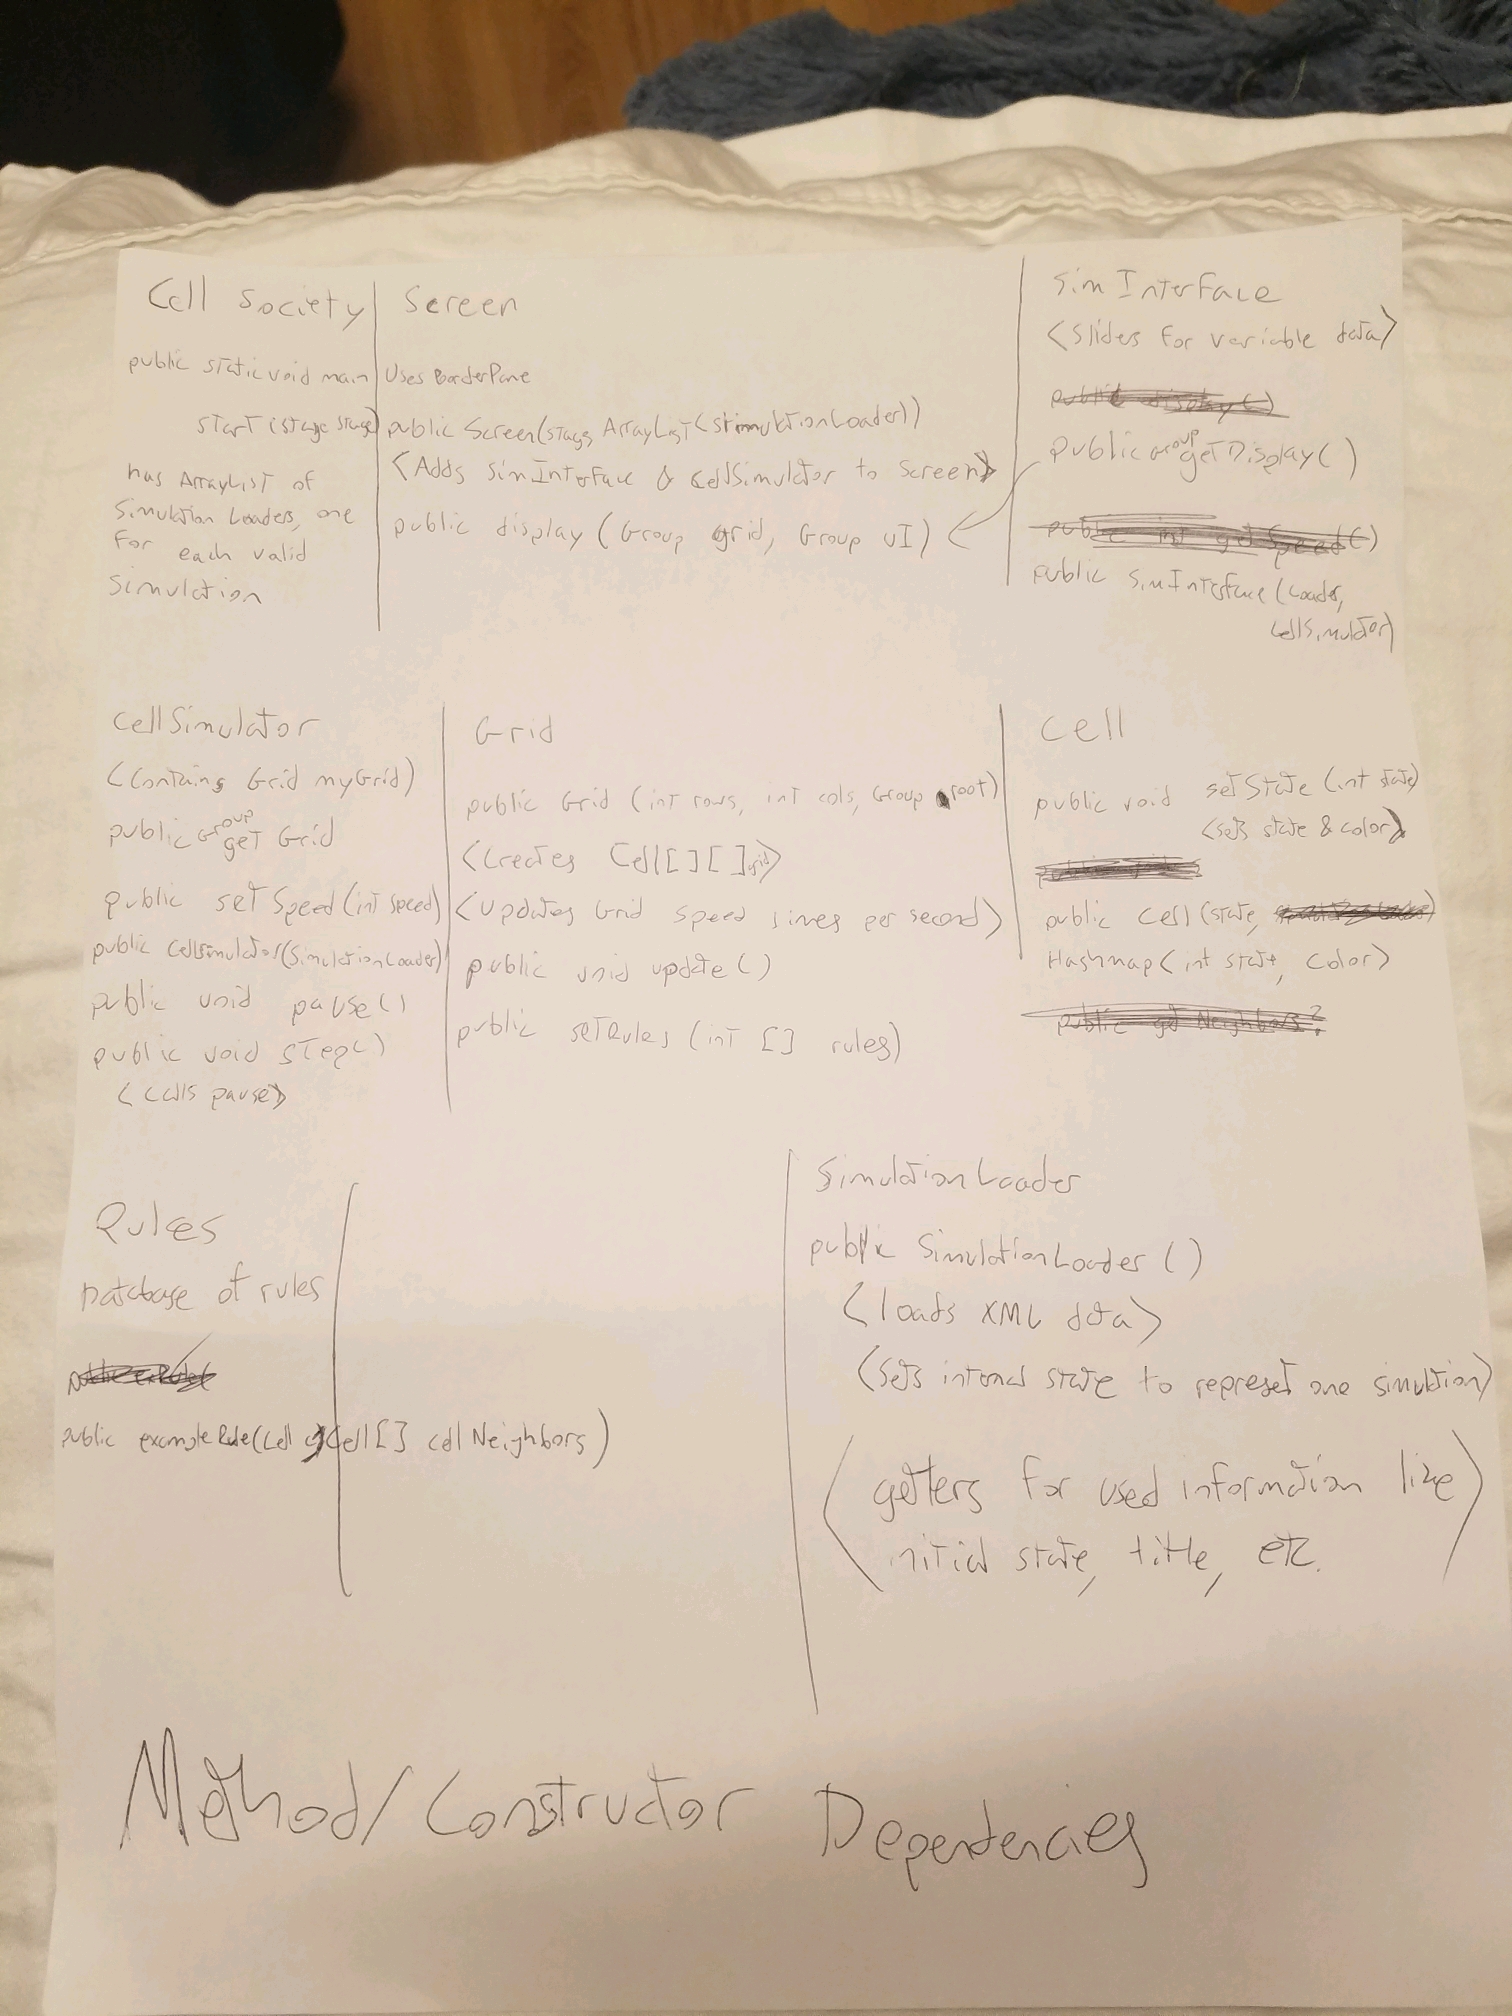 Cell Society
public static void main
start (stage stage)
has ArrayList of
Simulation Loaders, one
for each valid
simulation
Screen
Uses BorderPane
public Screen(stage, ArrayList<SimulationLoader>)
<Adds SimInterface & CellSimulator to Screen>
public display (Group grid, Group UI)
Sim Interface
<sliders for variable data>
public display()
public Group getDisplay()
public int getSpeed()
public SimInterface (Loader,
CellSimulator)
CellSimulator
(Contains Grid myGrid)
public Group get Grid
public set Speed (int speed)
public CellSimulator(SimulationLoader)
public void pause()
public void step()
<calls pause>
Grid
public Grid (int rows, int cols, Group root)
<Creates Cell[][] grid>
<Updates Grid speed times per second>
public void update()
public setRules (int [] rules)
Cell
public void setState (int state)
<sets state & color>
public Cell (state,
Hashmap<int state, Color>
public get Neighbors?
Rules
Database of rules
public exampleRule(Cell c, Cell[] cellNeighbors)
Simulation Loader
public SimulationLoader ()
<loads XML data>
<sets internal state to represet one simulation>
<getters for used information like
initial state, title, etc.>
Method/Constructor Dependencies